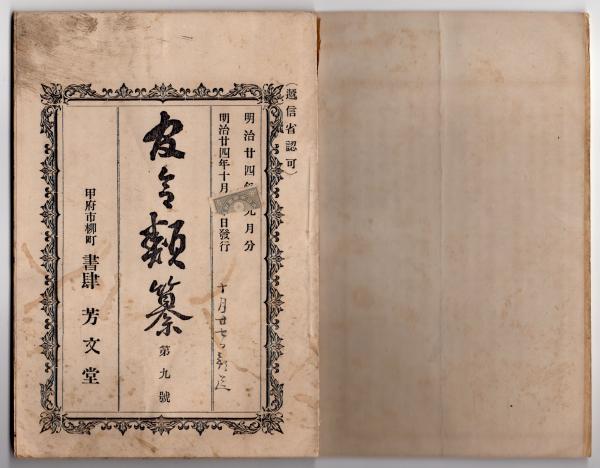 (遞信省認可)
明治廿四年九月分
明治廿四年十月 日發行
十月廿七日
官令類纂 第九號
甲府市柳町 書肆 芳文堂